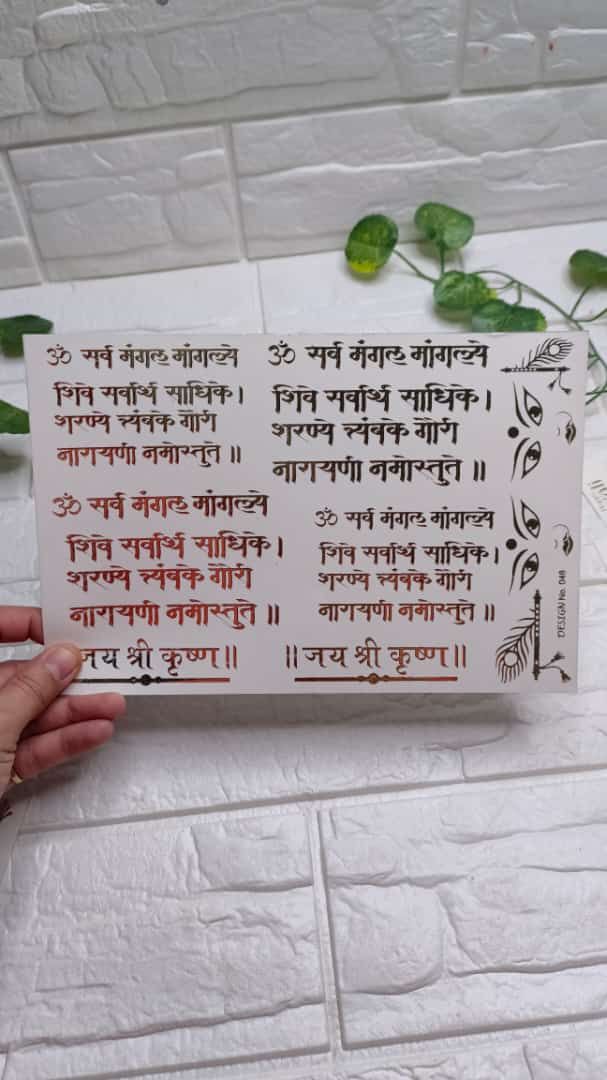 ॐ सर्व मंगल मांगल्ये
शिवे सर्वार्थ साधिके।
शरण्ये त्र्यंबके गौरी
नारायणी नमोस्तुते ॥
ॐ सर्व मंगल मांगल्ये
शिवे सर्वार्थ साधिके।
शरण्ये त्र्यंबके गौरी
नारायणी नमोस्तुते ॥
ॐ सर्व मंगल मांगल्ये
शिवे सर्वार्थ साधिके।
शरण्ये त्र्यंबके गौरी
नारायणी नमोस्तुते ॥
ॐ सर्व मंगल मांगल्ये
शिवे सर्वार्थ साधिके।
शरण्ये त्र्यंबके गौरी
नारायणी नमोस्तुते ॥
जय श्री कृष्ण॥
॥जय श्री कृष्ण॥
DESIGN No. 048